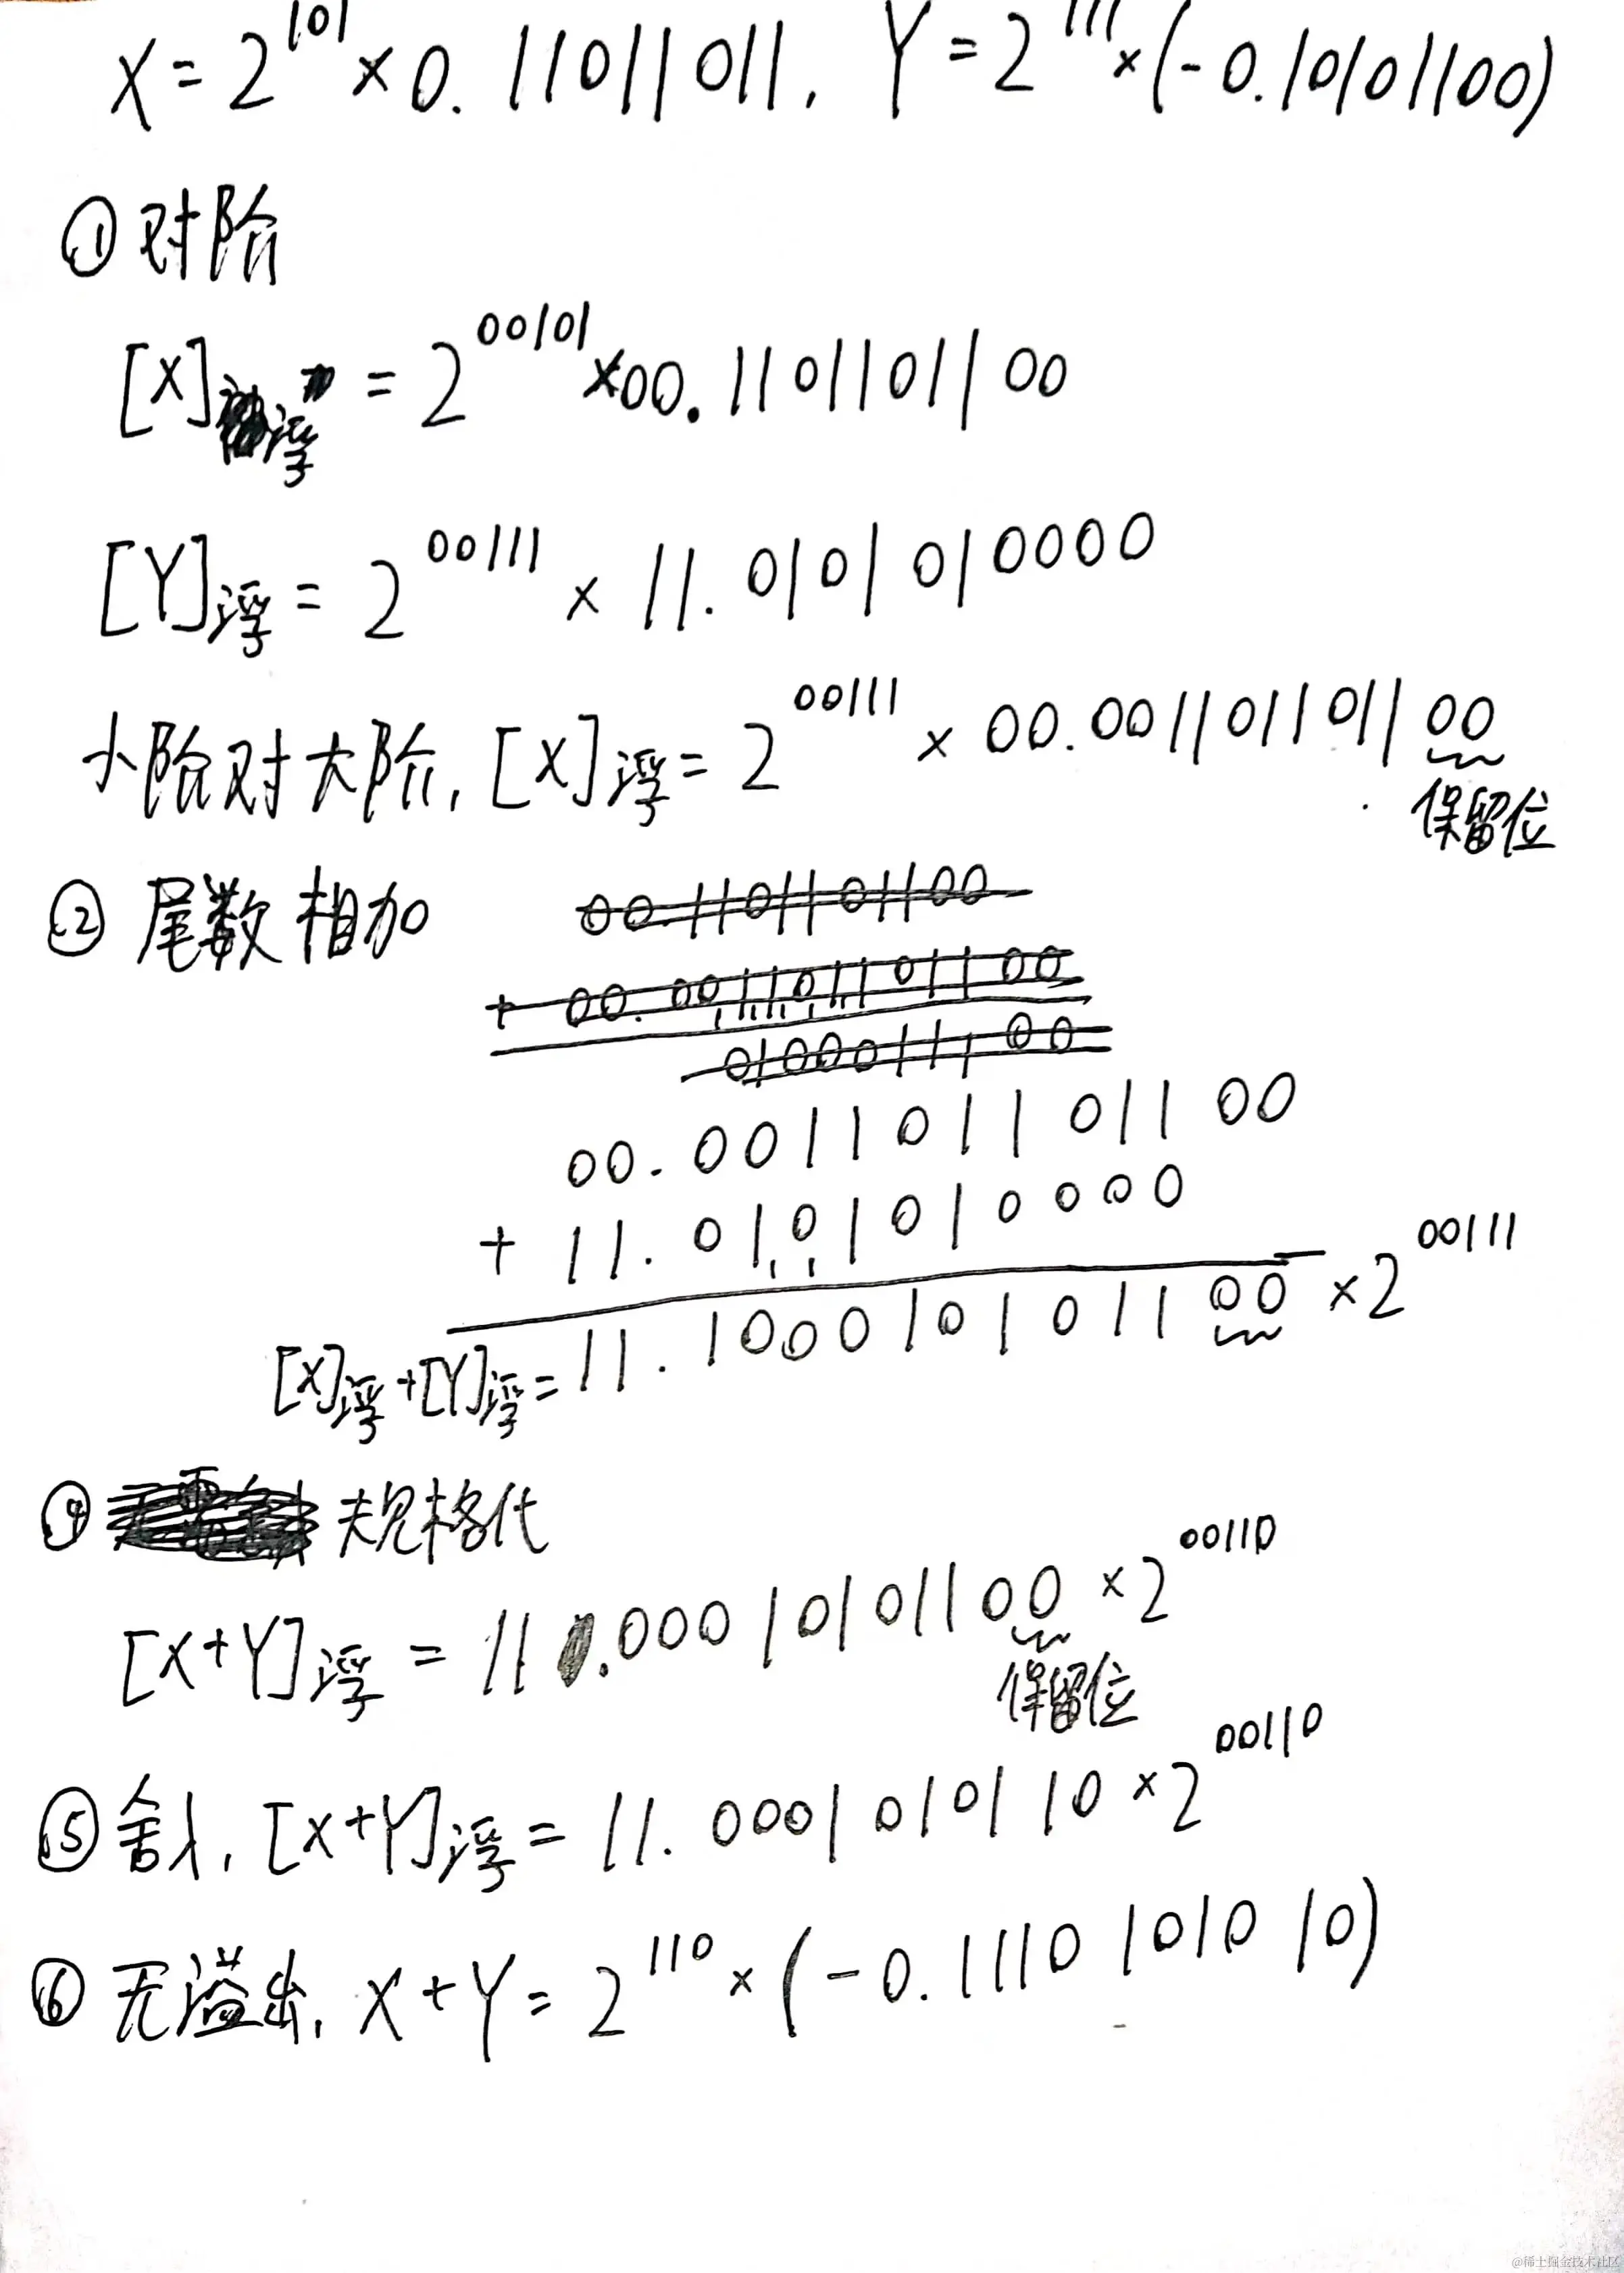 X=2^101×0.11011011, Y=2^111×(-0.10101100)
①对阶
[X]浮=2^00101×00.1101101100
[Y]浮=2^00111×11.0101010000
小阶对大阶,[X]浮=2^00111×00.001101101100
保留位
②尾数相加
00.1101101100
00.001101101100
+11.0101010000
[X]浮+[Y]浮=11.100010101100×2^00111
④规格化
[X+Y]浮=11.00010101100×2^00110
保留位
⑤舍入,[X+Y]浮=11.0001010110×2^00110
⑥无溢出,X+Y=2^110×(-0.1110101010)
@稀土掘金技术社区